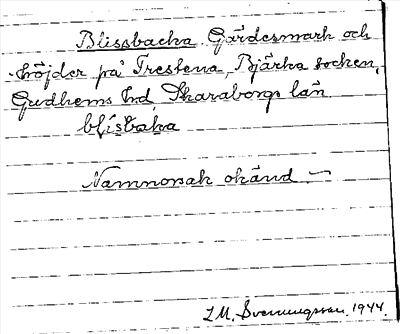 Blissbacka. Gärdesmark och
höjder på Trestena, Bjärka socken,
Gudhems hd, Skaraborgs län
blisbaka
Namnorsak okänd. —
I. M. Svenungsson. 1944.